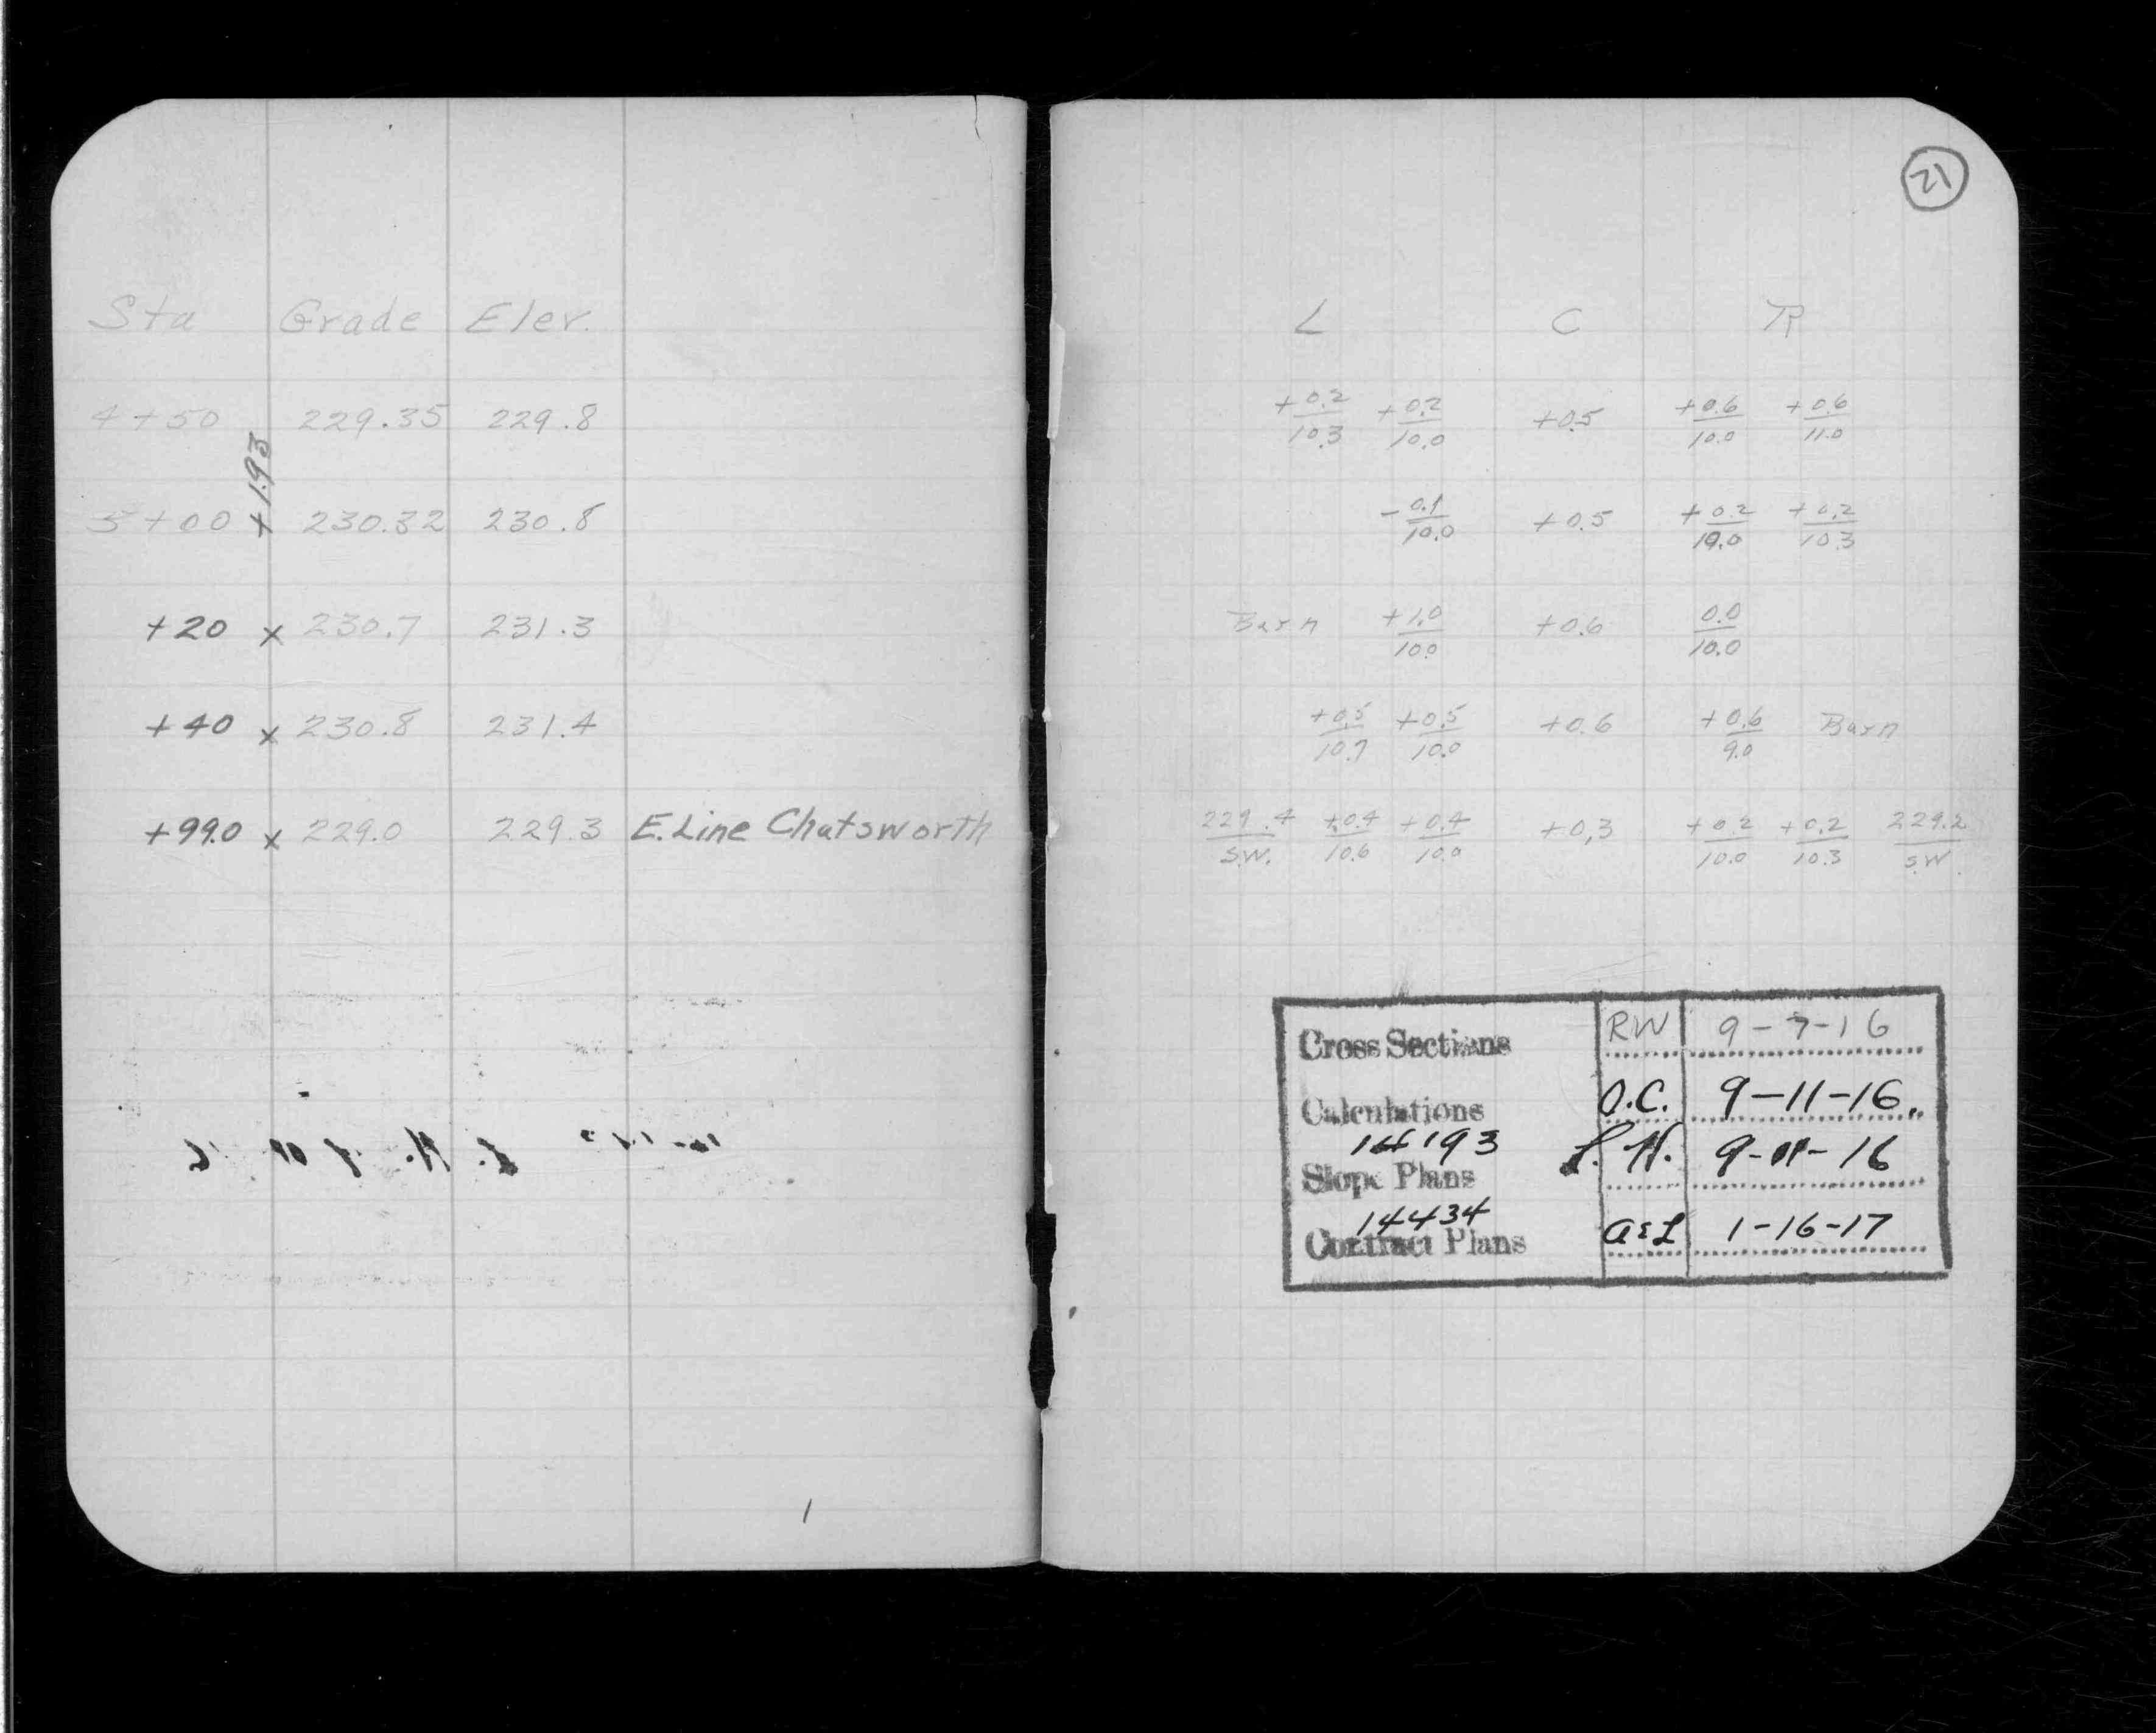 21
Sta Grade Elev.
4+50 229.35 229.8
+1.93
5+00 230.32 230.8
+20 x 230.7 231.3
+40 x 230.8 231.4
+99.0 x 229.0 229.3 E. Line Chatsworth
1
L C R
+0.2/10.3 +0.2/10.0 +0.5 +0.6/10.0 +0.6/11.0
-0.1/10.0 +0.5 +0.2/10.0 +0.2/10.3
Barn +1.0/10.0 +0.6 0.0/10.0
+0.5/10.7 +0.5/10.0 +0.6 +0.6/9.0 Barn
229.4/S.W. +0.4/10.6 +0.4/10.0 +0.3 +0.2/10.0 +0.2/10.3 229.2/S.W.
Cross Sections RW 9-7-16
Calculations O.C. 9-11-16
14193
Slope Plans L. H. 16
14434
Contract Plans 1-16-17